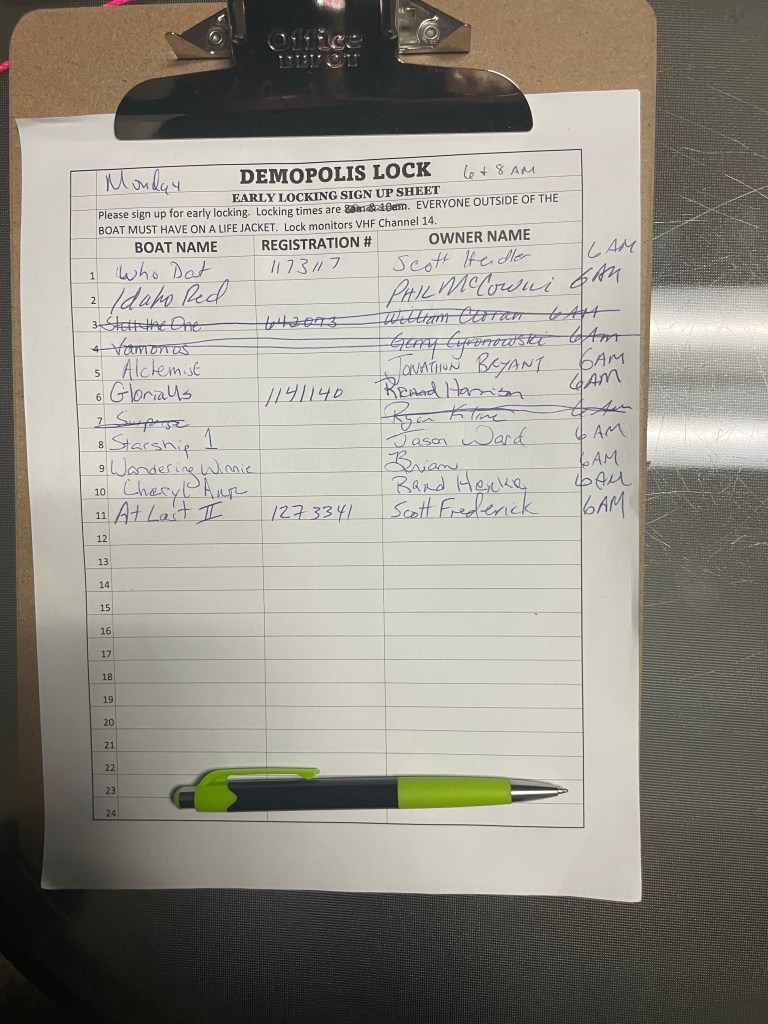 Office
DEPOT
Monday DEMOPOLIS LOCK 6 + 8 AM
EARLY LOCKING SIGN UP SHEET
Please sign up for early locking. Locking times are 8am & 10am. EVERYONE OUTSIDE OF THE
BOAT MUST HAVE ON A LIFE JACKET. Lock monitors VHF Channel 14.
BOAT NAME REGISTRATION # OWNER NAME
1 Who Dat 1173117 Scott Heidler 6 AM
2 Idaho Red PHIL McCowin 6 AM
3 Still the One 642093 William 6 AM
4 Vamonos Gerry Cyronowski 6 Am
5 Alchemist JONATHON BRYANT 6AM
6 Gloria Us 1141140 Harrison 6AM
7 Surprise Ryan Kline 6 Am
8 Starship 1 Jason Ward 6 AM
9 Wandering Winnie Brian 6AM
10 Cheryl Ann Henke 6AM
11 At Last II 1273341 Scott Frederick 6AM
12
13
14
15
16
17
18
19
20
21
22
23
24